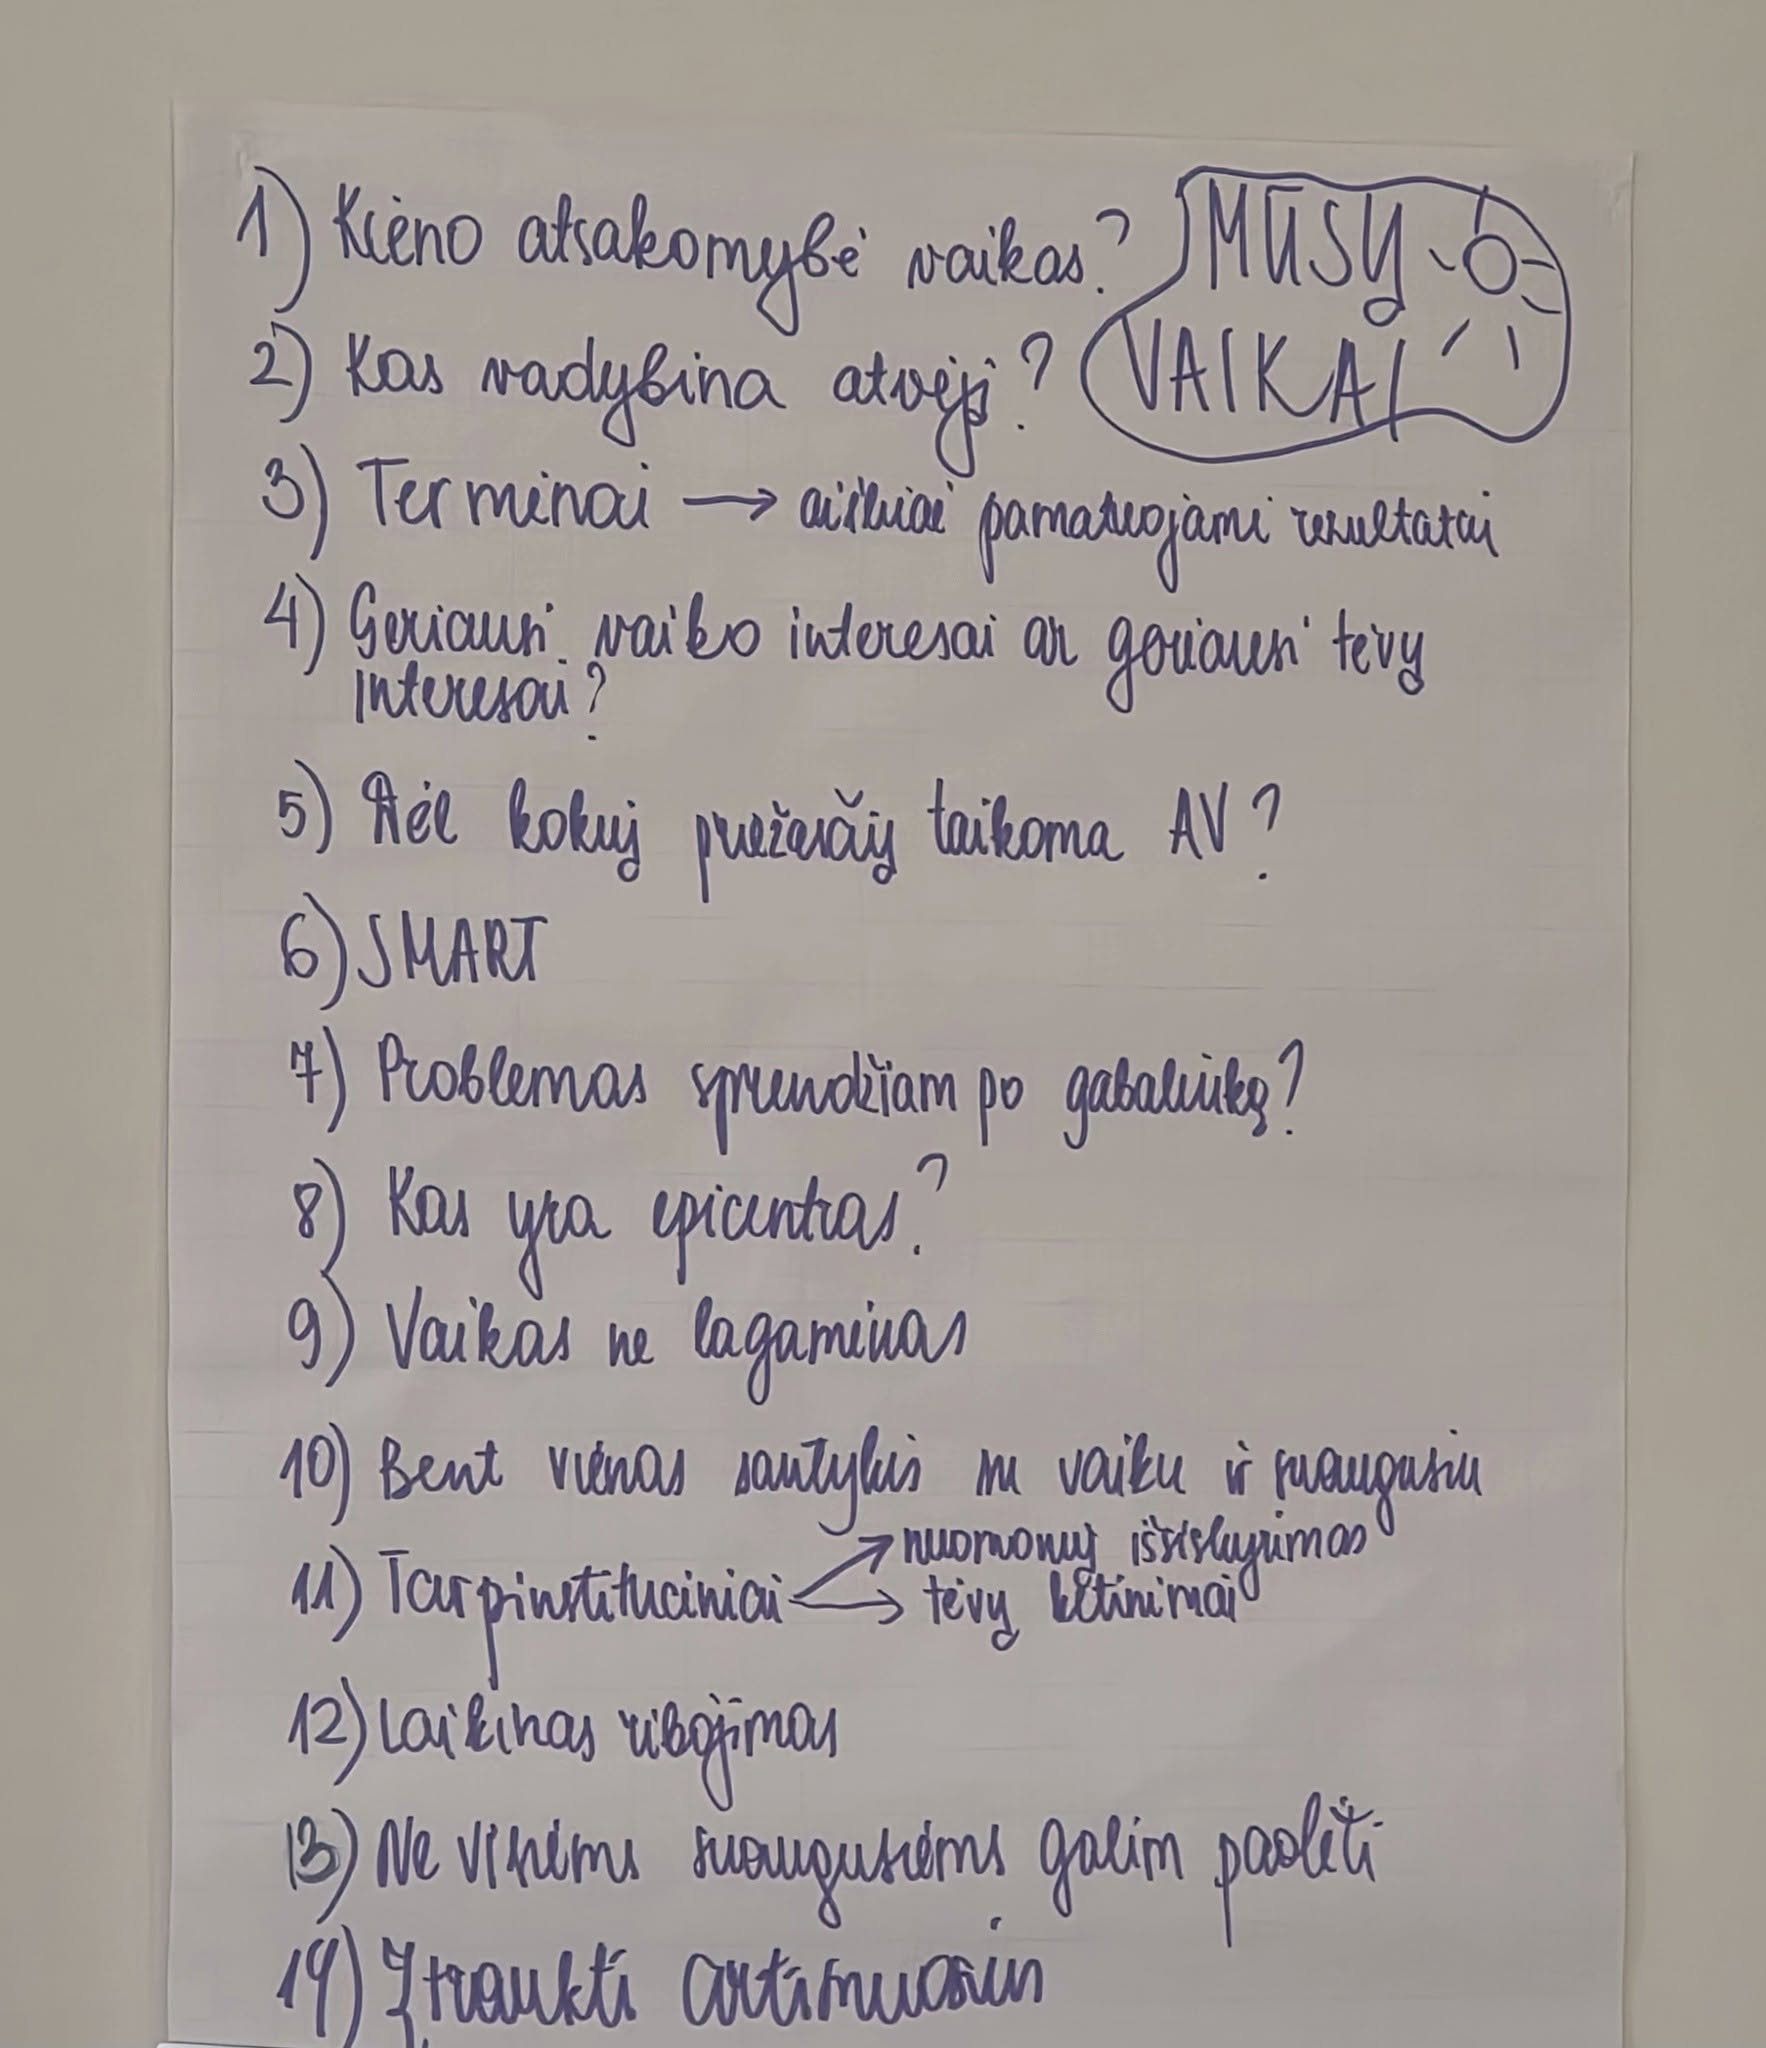 1) Kieno atsakomybė vaikas?
MŪSŲ
VAIKAI
2) Kas vadybina atvėjį?
3) Terminai → aiškiai pamatuojami rezultatai
4) Geriausi vaiko interesai ar geriausi tėvų
interesai?
5) Dėl kokių priežasčių taikoma AV?
6) SMART
7) Problemas sprendžiam po gabaliuką?
8) Kas yra epicentras?
9) Vaikas ne lagaminas
10) Bent vienas santykis su vaiku ir suaugusiu
11) Tarpinstituciniai → nuomonių išsiskyrimas
→ tėvų ketinimai
12) Laikinas ribojimas
13) Ne visiems suaugusiems galim padėti
14) Įtraukti artimuosius